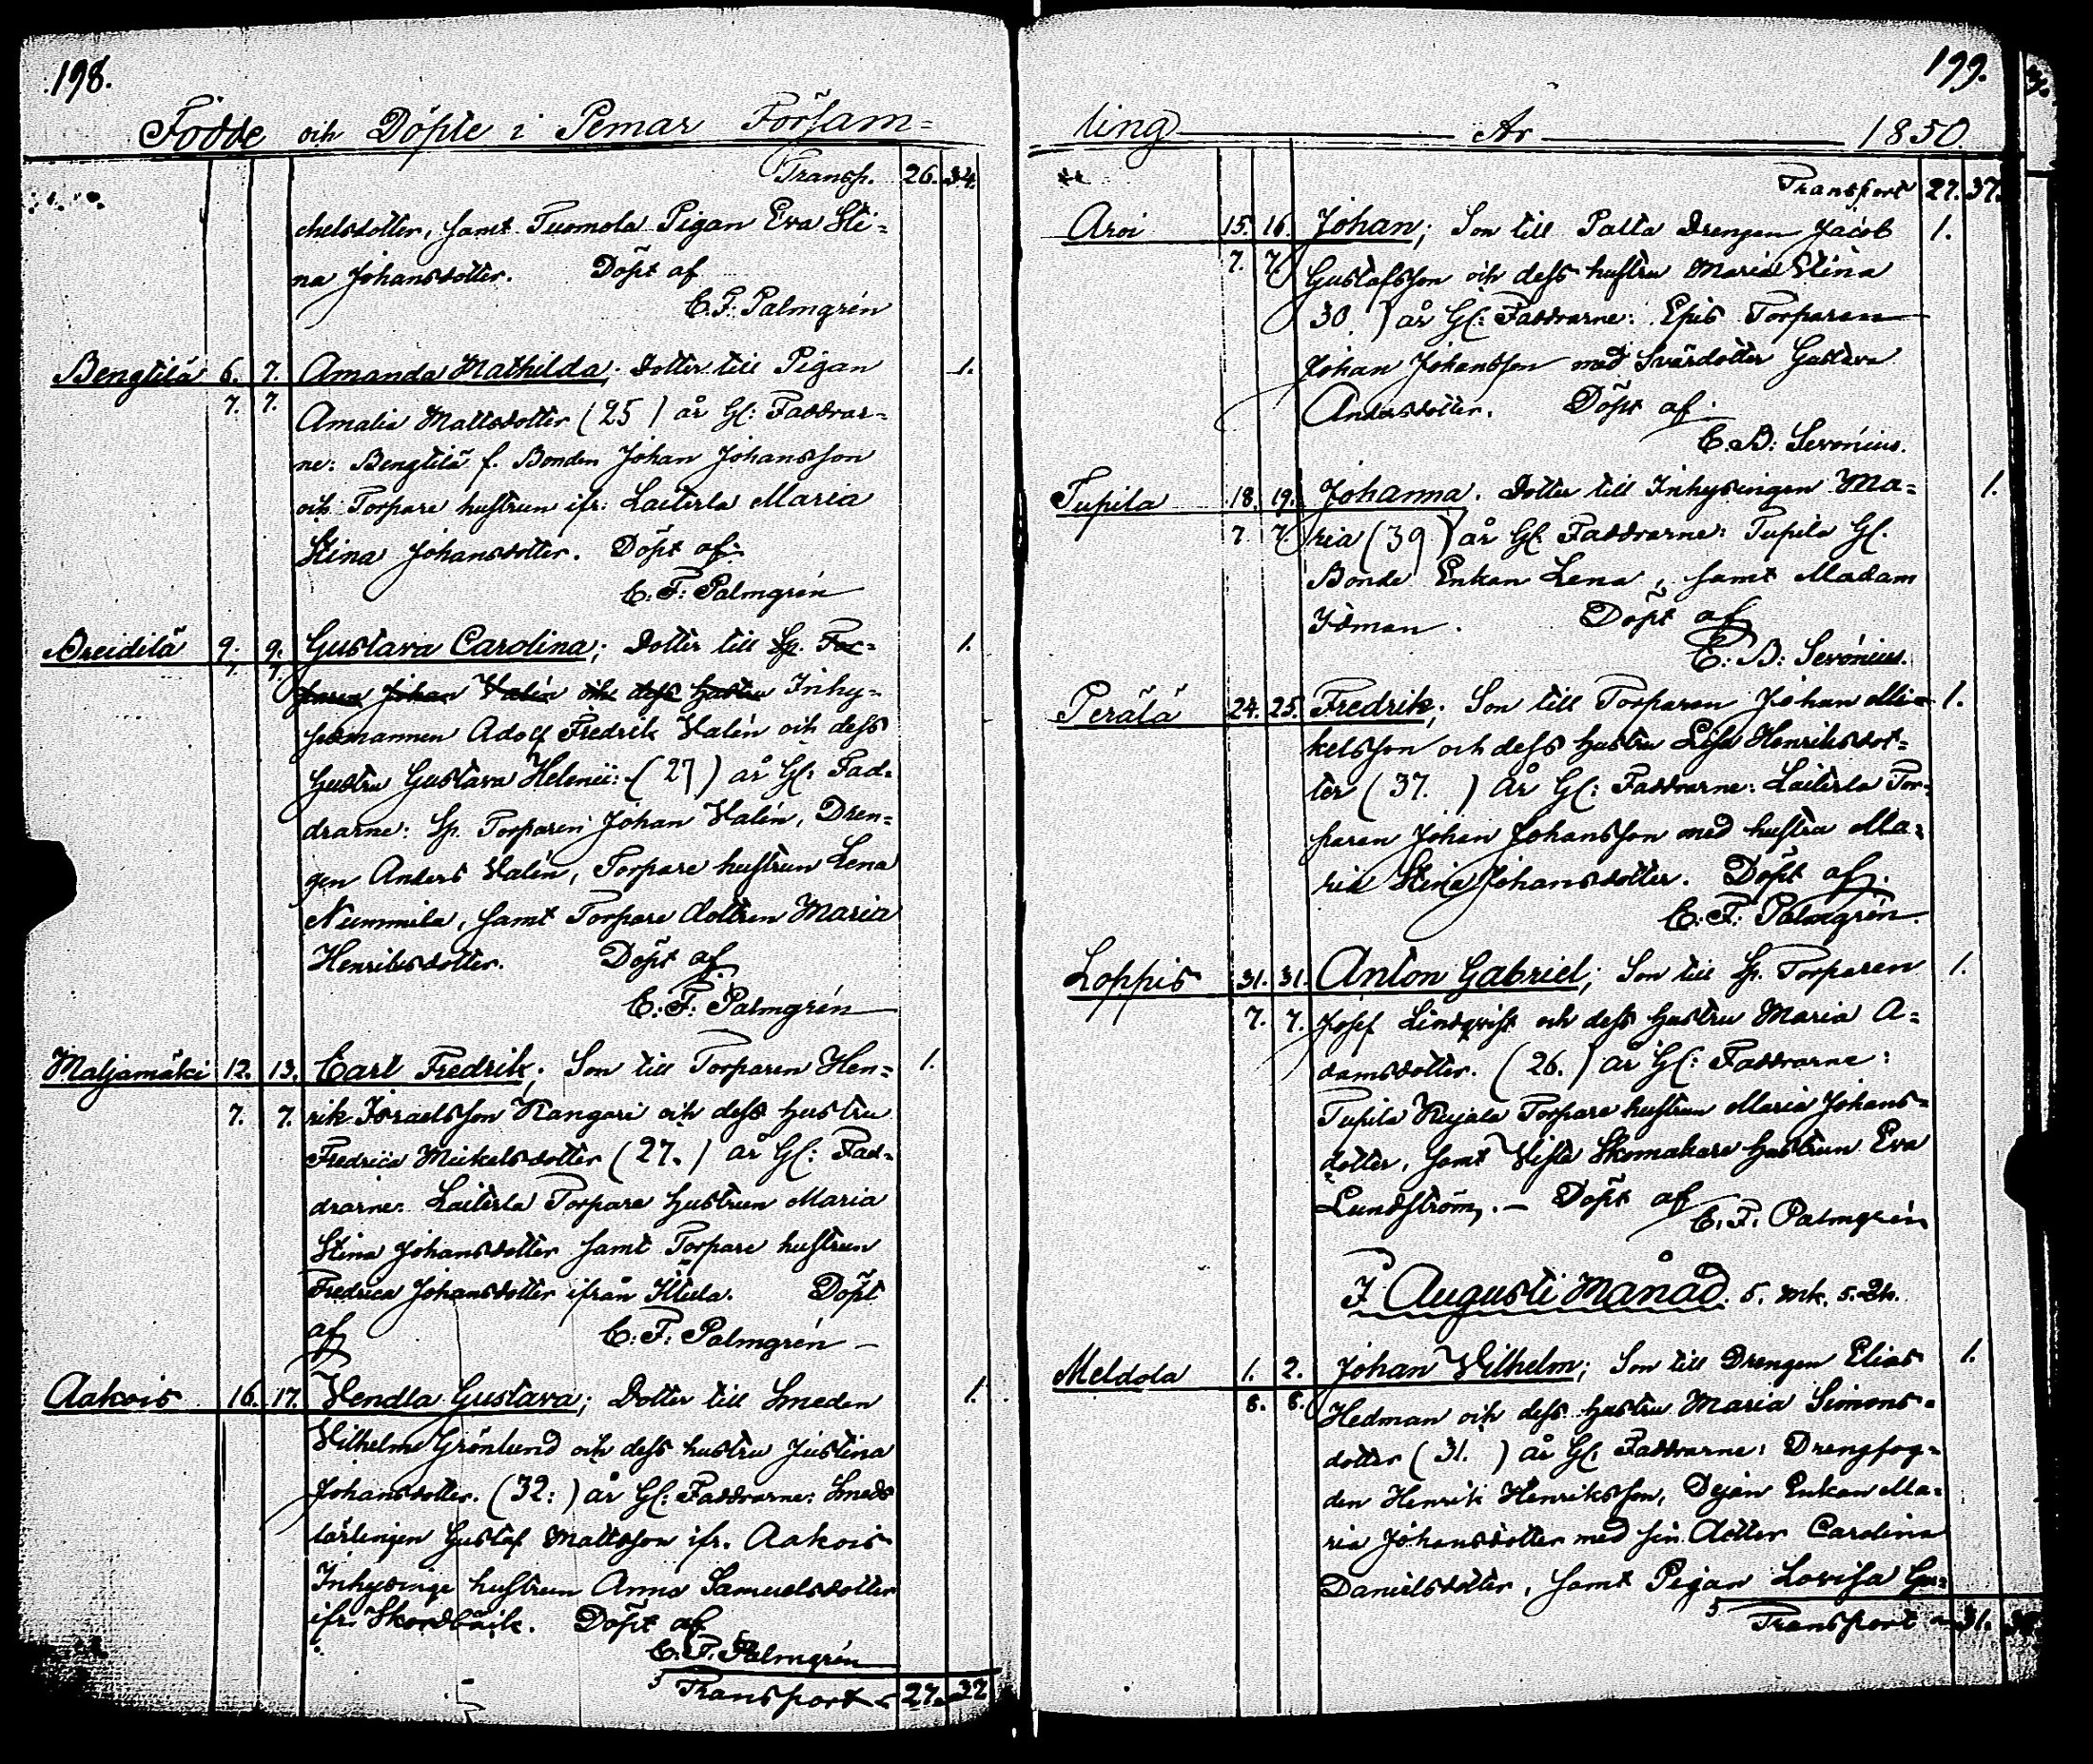 198.
Födde och Döpte i Pemar Församˍ
Transp. 26. 34.
chelsdotter, samt Tuomola Pigan Eva Sti=
na Johansdotter. Döpt af
C. F: Palmgrén
Bengtilä 6. 7. Amanda Mathilda; Dotter till Pigan 1.
7. 7. Amalia Mattsdotter (25) år Gl: Faddrar=
ne: Bengtilä f. Bonden Johan Johansson
och Torpare hustrun ifr: Laiterla Maria
Stina Johansdotter. Döpt af:
C: F: Palmgrén
Breidilä 9. 9. Gustava Carolina; Dotter till Sp. Tor= 1.
7. 7. paren Johan Valén och dess hustru Inhy=
sesmannen Adolf Fredrik Valén och dess
hustru Gustava Helenii: (27) år Gl: Fad=
drarne: Sp. Torparen Johan Valén, Dren=
gen Anders Valén, Torpare hustrun Lena
Nummila, samt Torpare dottren Maria
Henriksdotter. Döpt af
C: F: Palmgrén
Maljamäki 12. 13. Carl Fredrik; Son till Torparen Hen= 1.
7. 7. rik Israelsson Kangari och dess hustru
Fredrica Mickelsdotter (27.) år Gl: Fad=
drarne: Laiterla Torpare hustrun Maria
Stina Johansdotter samt Torpare hustrun
Fredrica Johansdotter ifrån Ittula. Döpt
af C: F: Palmgrén
Aakois 16. 17. Vendla Gustava; Dotter till Smeden 1.
Vilhelm Grönlund och dess hustru Justina
Johansdotter. (32:) år Gl: Faddrarne: Smeds
lärlingen Gustaf Mattsson ifr. Aakois
Inhysinge hustrun Anna Samuelsdotter
ifr. Skordbäik. Döpt af
C. F. Palmgrén
Transport 27. 37
199.
ling År 1850.
Transport 27. 37.
Aroi 15. 16. Johan; Son till Palta Drengen Jacob 1.
7. 7. Gustafsson och dess hustru Maria Stina
30 ) år Gl: Faddrarne: Epis Torparen
Johan Johansson med Svärdotter Gustava
Andersdotter. Döpt af:
C. B: Servónius.
Tupila 18. 19. Johanna. Dotter till Inhysingen Ma= 1.
7. 7. ria (39) år Gl: Faddrarne: Tupila Gl.
Bonde Enkan Lena, samt Madam
Idman. Döpt af
C: B: Servónius.
Perälä 24. 25. Fredrik; Son till Torparen Johan Mi= 1.
kelsson och dess hustru Lisa Henriksdot=
ter (37. ) År Gl: Faddrarne: Laiterla Tor=
paren Johan Johansson med hustru Ma=
ria Stina Johansdotter. Döpt af.
C: F: Palmgrén.
Loppis 31. 31. Anton Gabriel; Son till Sp. Torparen 1.
7. 7. Josef Lindqvist och dess hustru Maria A=
damsdotter. (26.) år Gl: Faddrarne:
Tupila Kujala Torpare hustrun Maria Johans=
dotter, samt Vista Skomakare hustrun Eva
Lundström,.— Döpt af
C. F: Palmgrén
I Augusti Månad. 5. mk. 5. 2k.
Meldola 1. 2. Johan Vilhelm; Son till Drengen Elias 1.
8. 8. Hedman och dess hustru Maria Simons=
dotter (31. ) år Gl: Faddrarne: Drengfog=
den Henrik Henriksson, Dejän Enkan Ma=
ria Johansdotter med sin dotter Carolina
Danielsdotter, samt Pigan Lovisa Gu=
Transport 31.